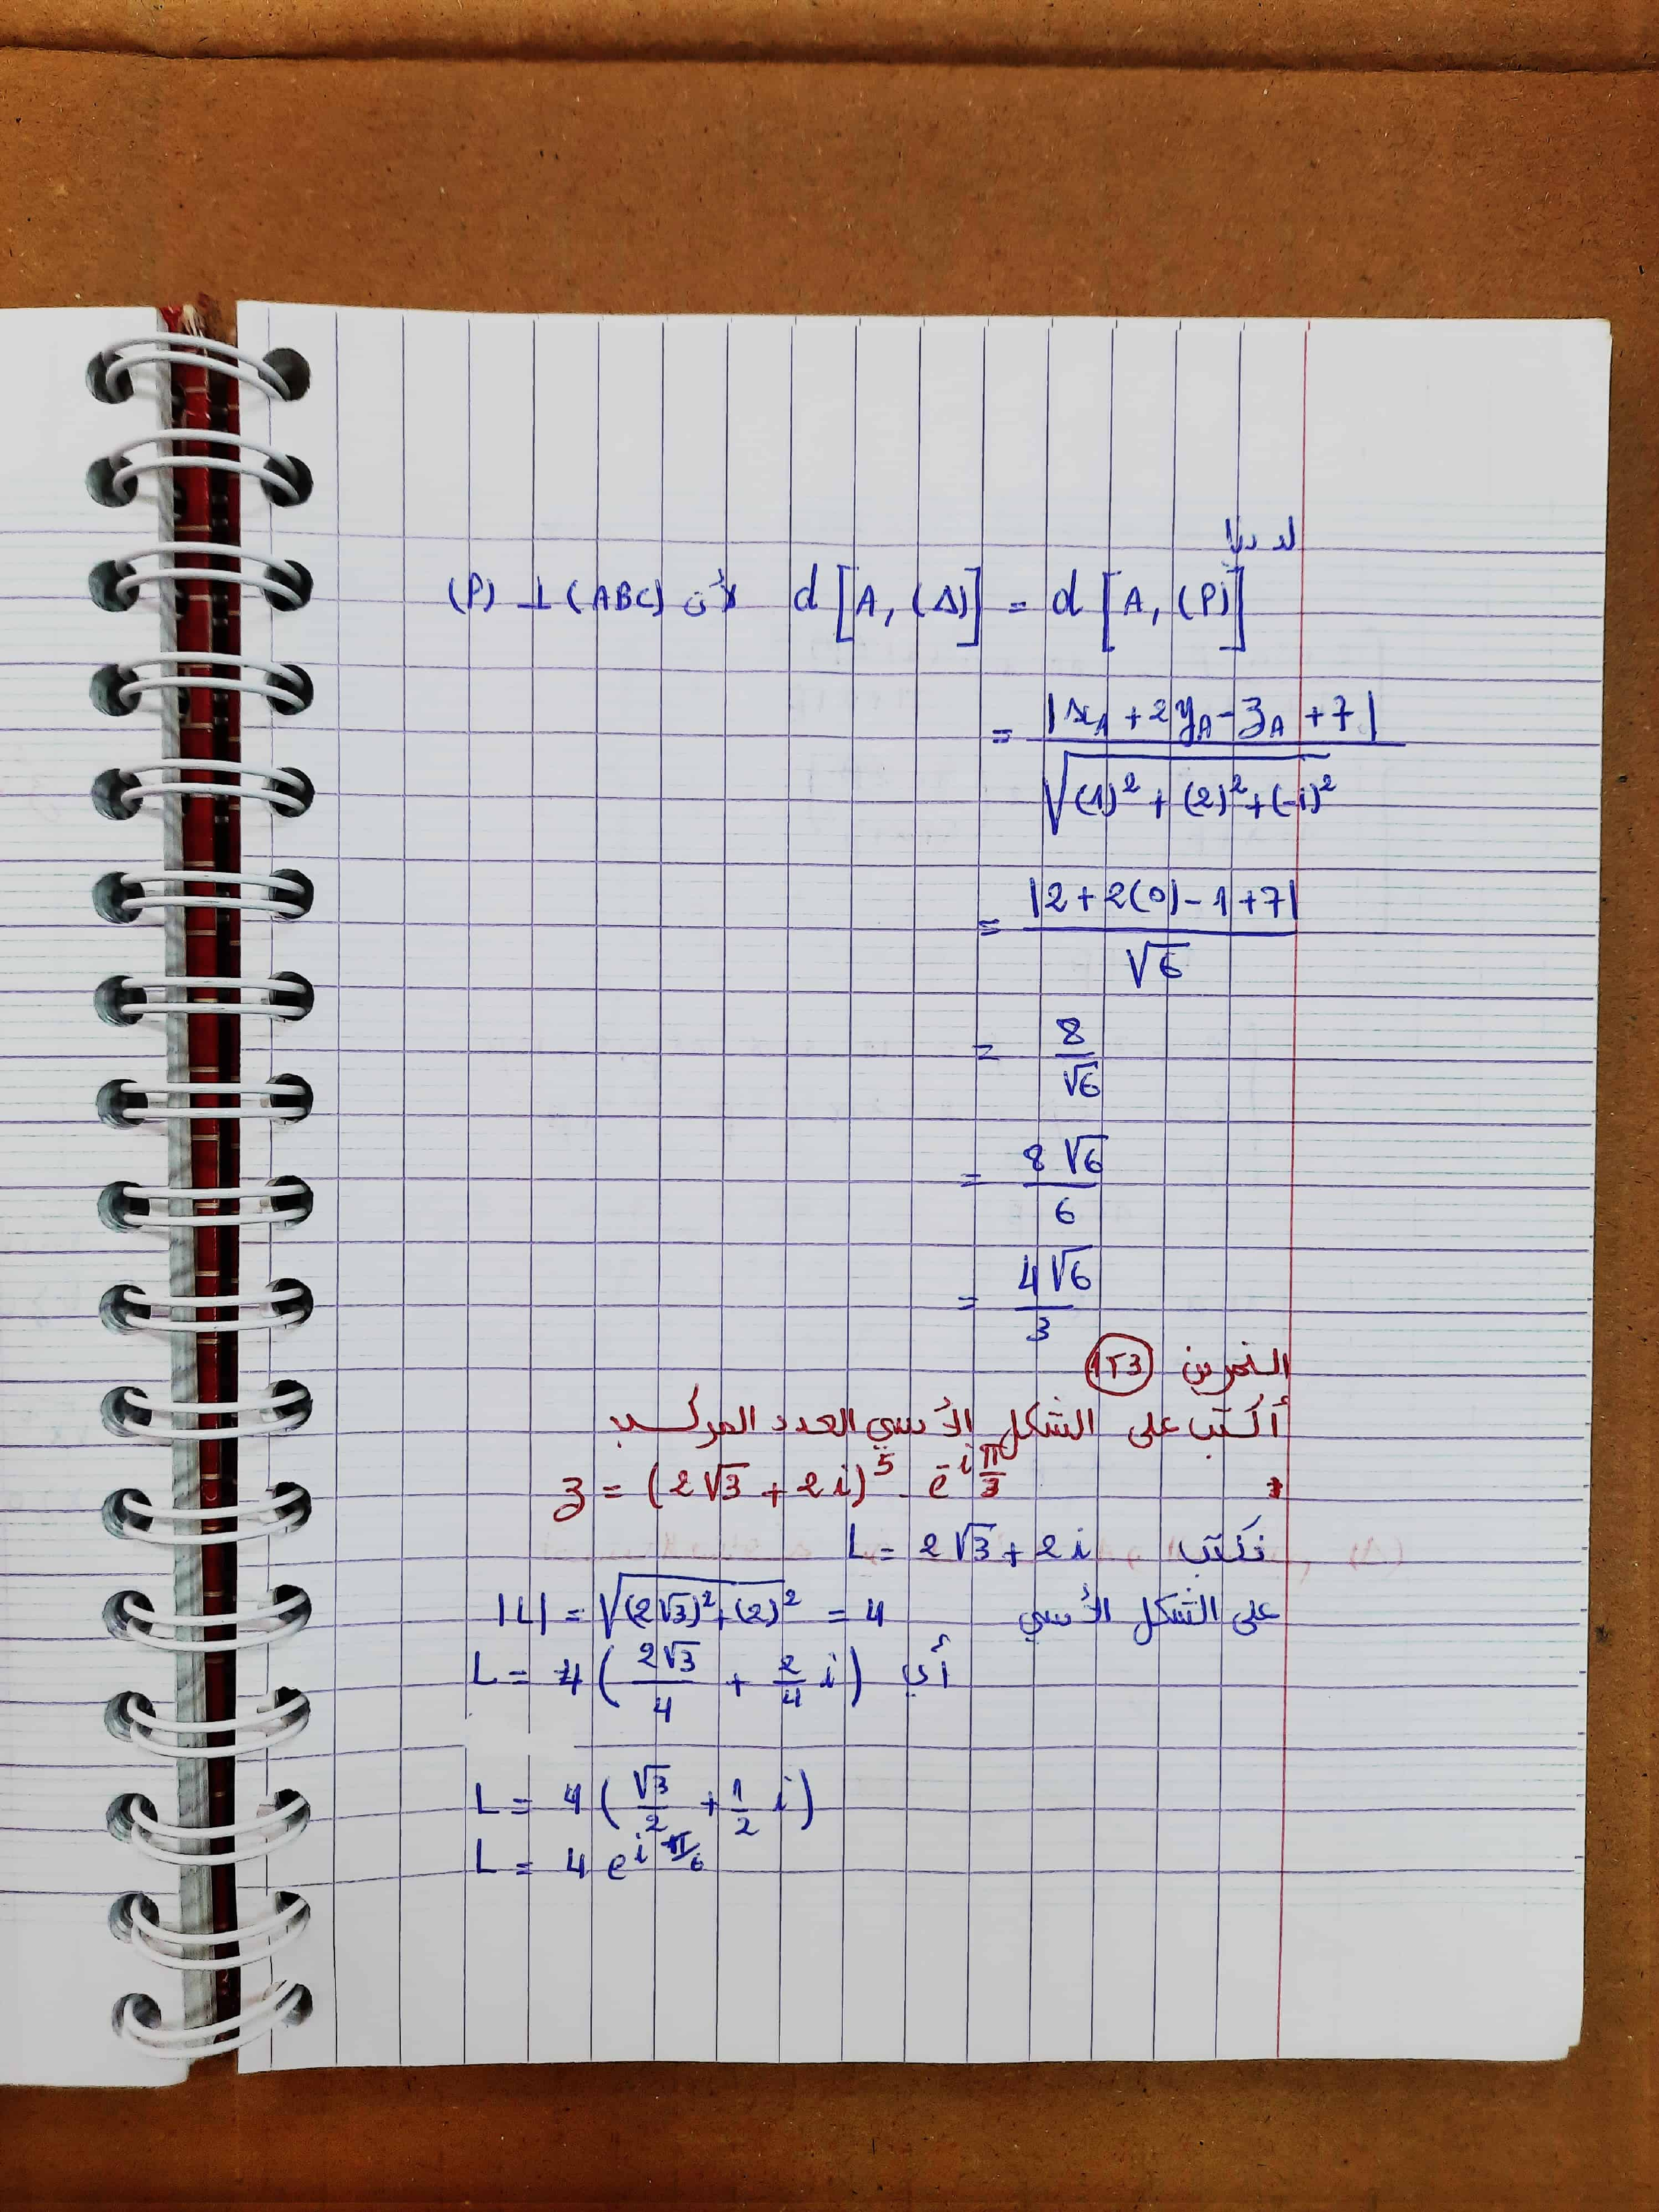 لدينا
d[A, (Δ)] = d[A, (P)] لأن (P) ⊥ (ABC)
= |x_A + 2y_A - z_A + 7| / √((1)² + (2)² + (-1)²)
= |2 + 2(0) - 1 + 7| / √6
= 8 / √6
= 8√6 / 6
= 4√6 / 3
التمرين 123
أكتب على الشكل الأسي العدد المركب
z = (2√3 + 2i)⁵ . e^(-iπ/3) *
نكتب L = 2√3 + 2i
على الشكل الأسي |L| = √((2√3)² + (2)²) = 4
أي L = 4(2√3/4 + 2/4 i)
L = 4(√3/2 + 1/2 i)
L = 4 e^(iπ/6)